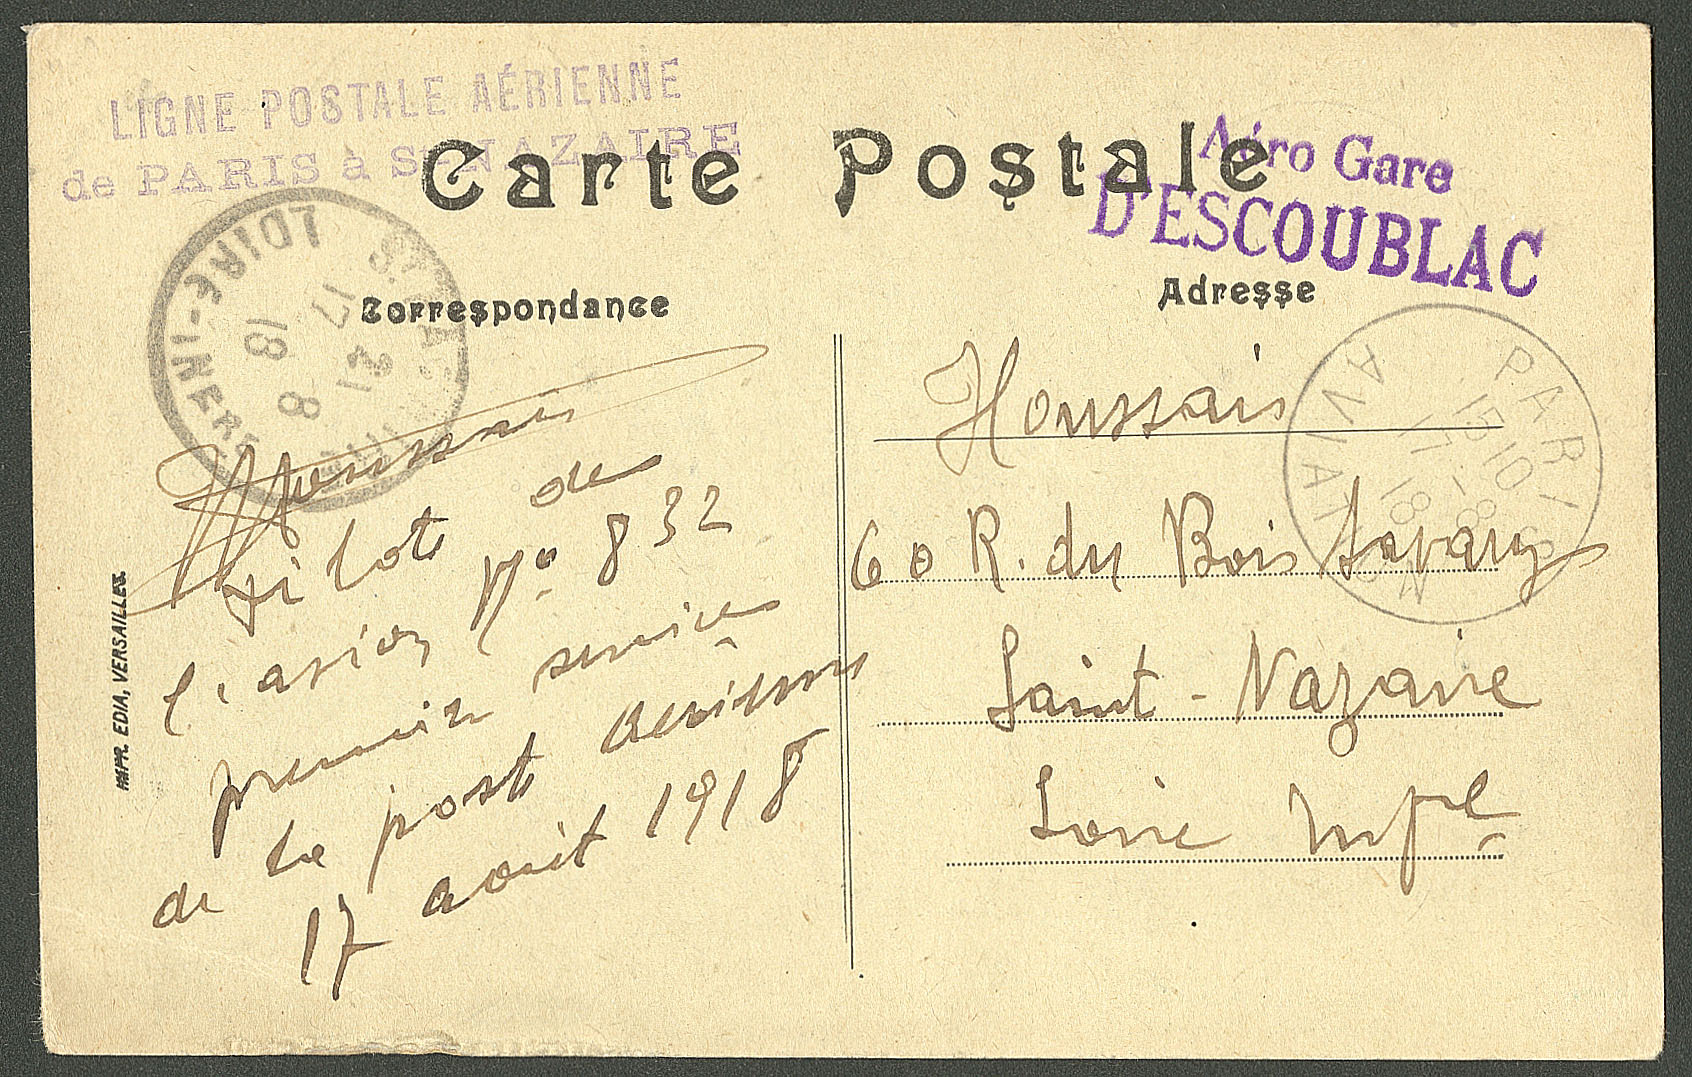 LIGNE POSTALE AÉRIENNE
de PARIS à St NAZAIRE
Carte Postale
Aéro Gare
D'ESCOUBLAC
Correspondance
Adresse
LOIRE-INFERE
17 21
18 8
PARIS
15 10
17 -8
18
AVIATION
Houssais
pilote de
l'avion No 832
premier service
de la poste aerienne
17 aout 1918
Houssais
60 R. du Bois Savary
Saint-Nazaire
Loire Infre
IMPR. EDIA, VERSAILLES.